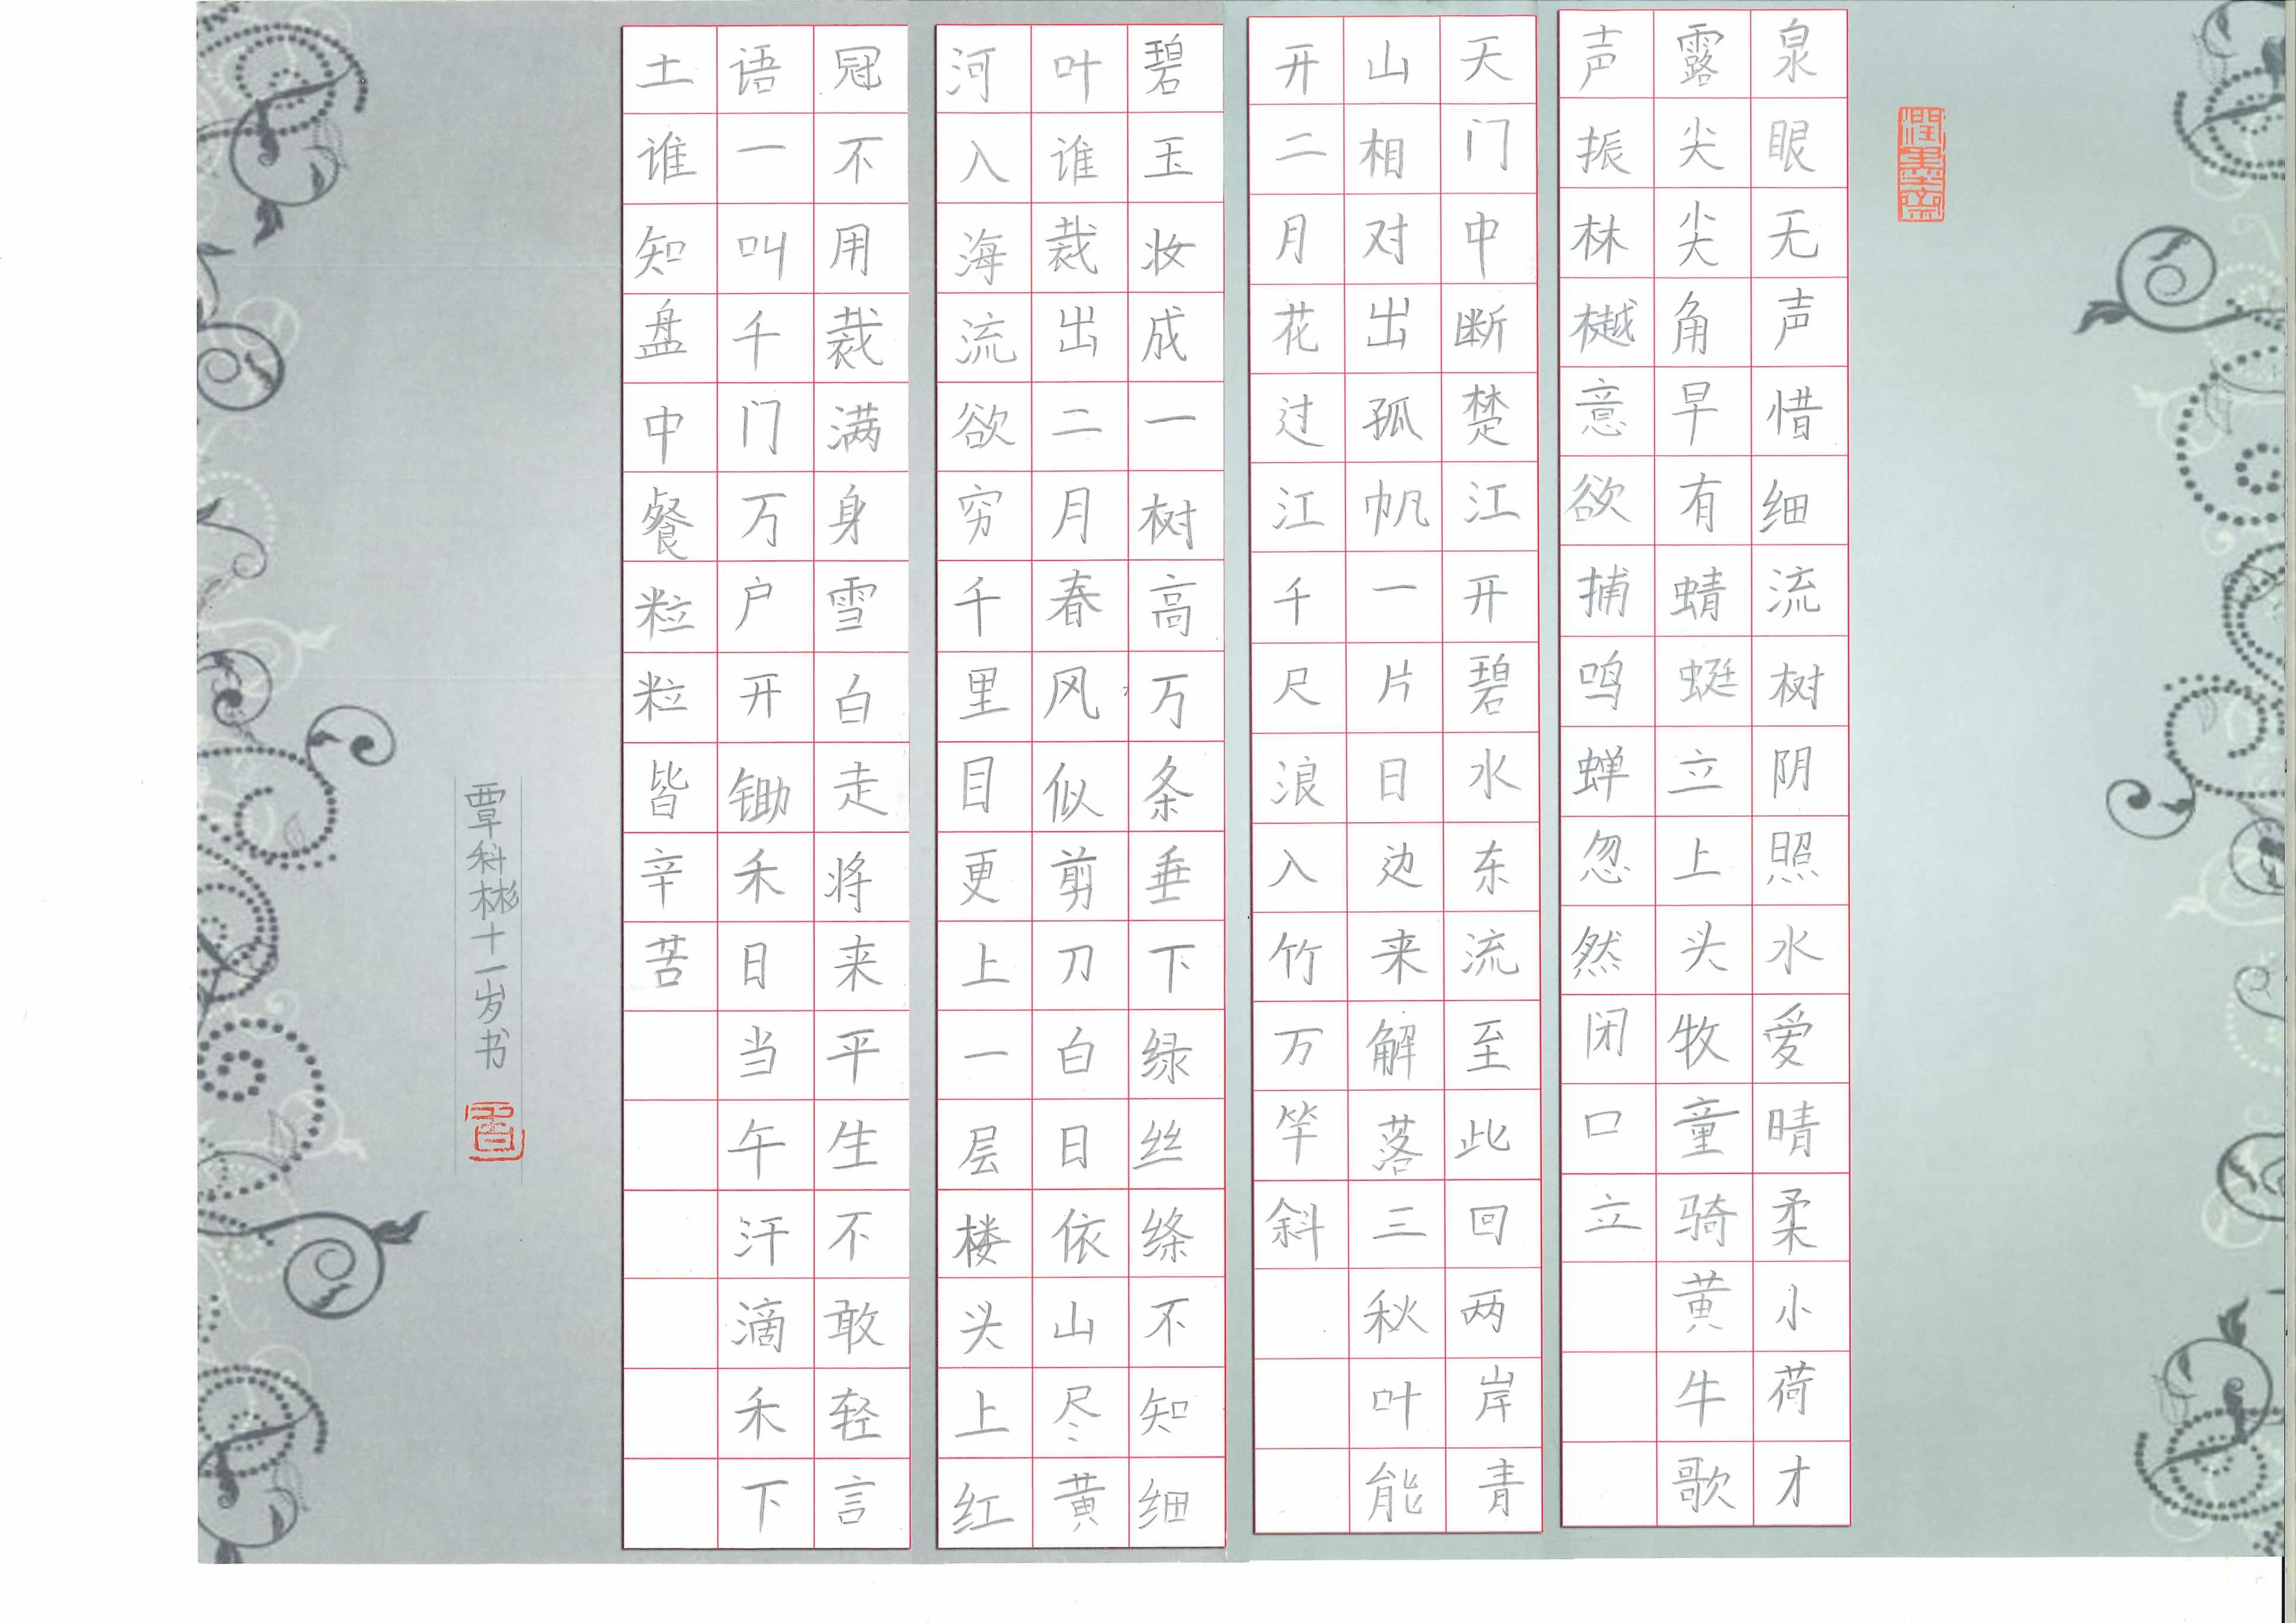 泉眼无声惜细流树阴照水爱晴柔小荷才
露尖尖角早有蜻蜓立上头牧童骑黄牛歌
声振林樾意欲捕鸣蝉忽然闭口立
天门中断楚江开碧水东流至此回两岸青
山相对出孤帆一片日边来解落三秋叶能
开二月花过江千尺浪入竹万竿斜
碧玉妆成一树高万条垂下绿丝绦不知细
叶谁裁出二月春风似剪刀白日依山尽黄
河入海流欲穷千里目更上一层楼头上红
冠不用裁满身雪白走将来平生不敢轻言
语一叫千门万户开锄禾日当午汗滴禾下
土谁知盘中餐粒粒皆辛苦
覃科彬十一岁书